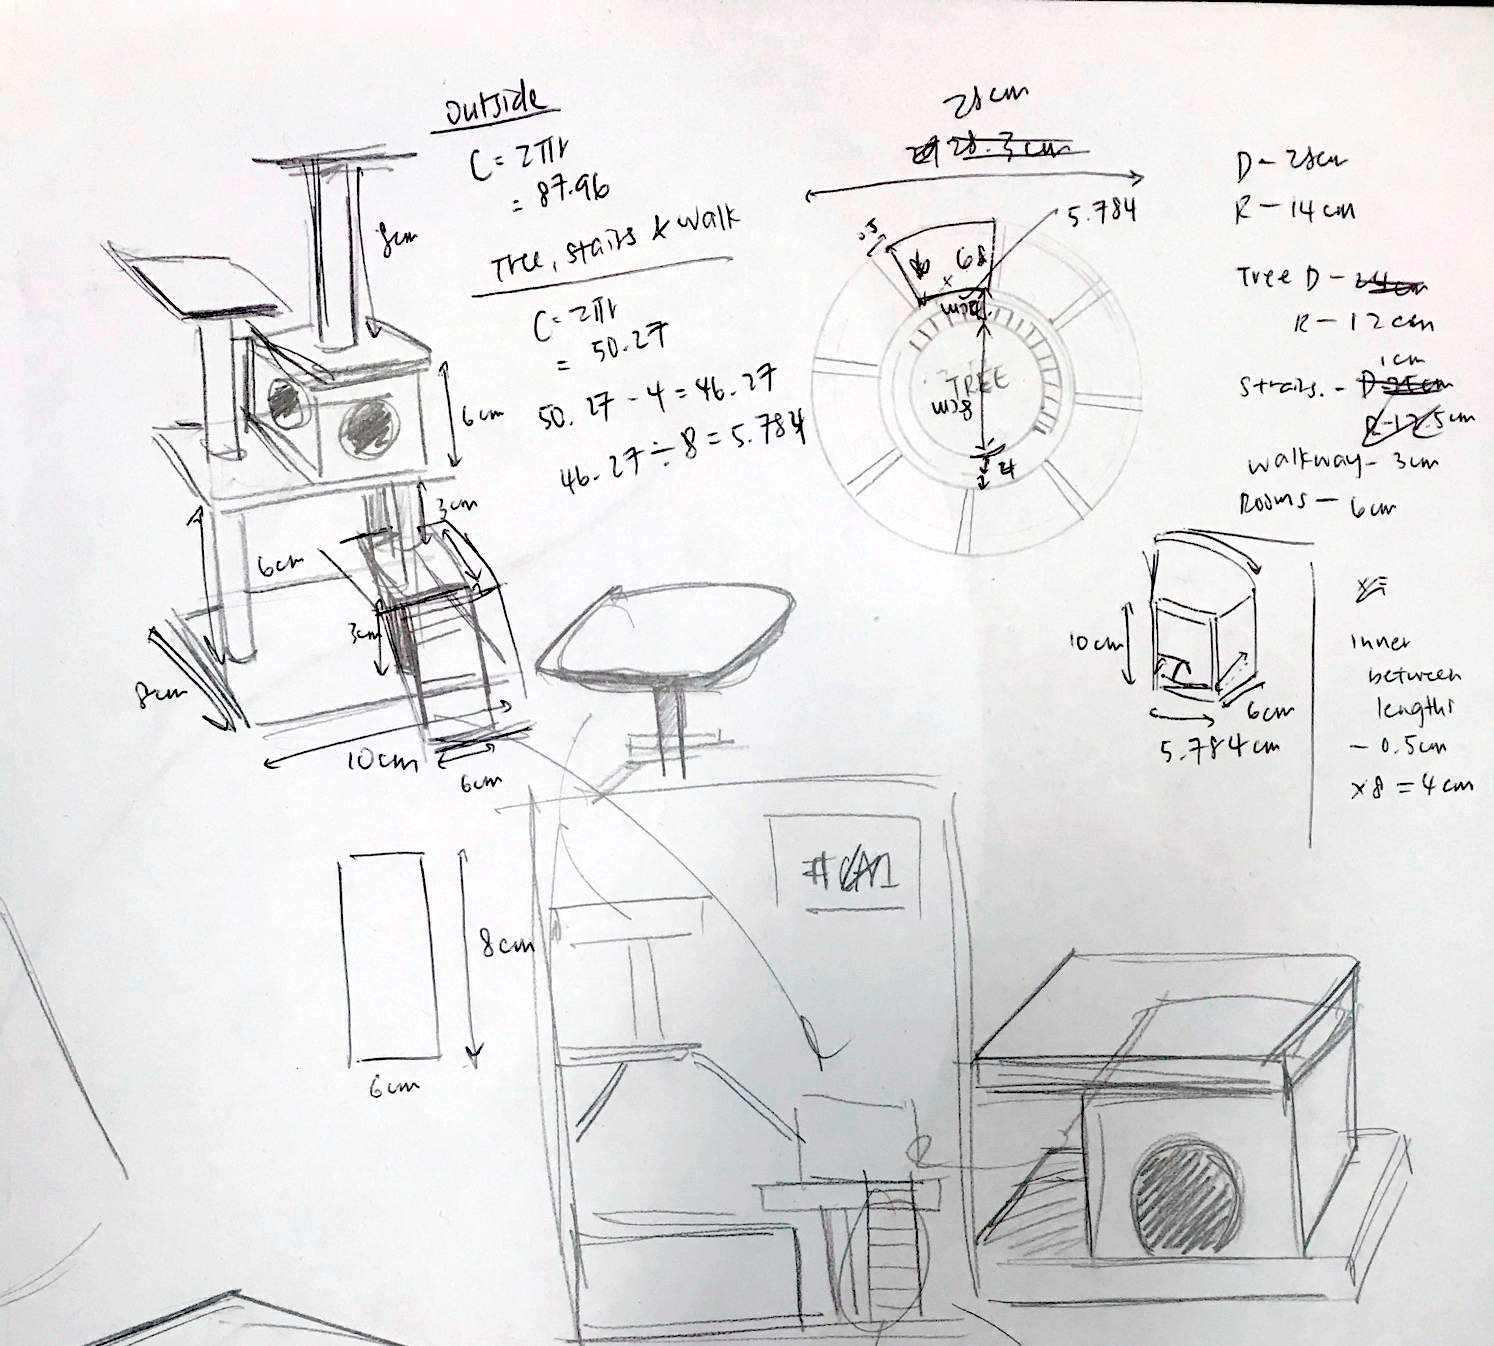 outside
C = 2πr
= 87.96
Tree, stairs & walk
C = 2πr
= 50.27
50.27 - 4 = 46.27
46.27 ÷ 8 = 5.784
8cm
6cm
3cm
6cm
3cm
8cm
10cm
6cm
8cm
6cm
28cm
28.3cm
5.784
TREE
8cm
4
D - 28cm
R - 14cm
Tree D - 24cm
R - 12cm
1cm
Stairs. - D 25cm
R - 12.5cm
walkway - 3cm
Rooms - 6cm
10cm
6cm
5.784cm
inner
between
lengths
- 0.5cm
x8 = 4cm